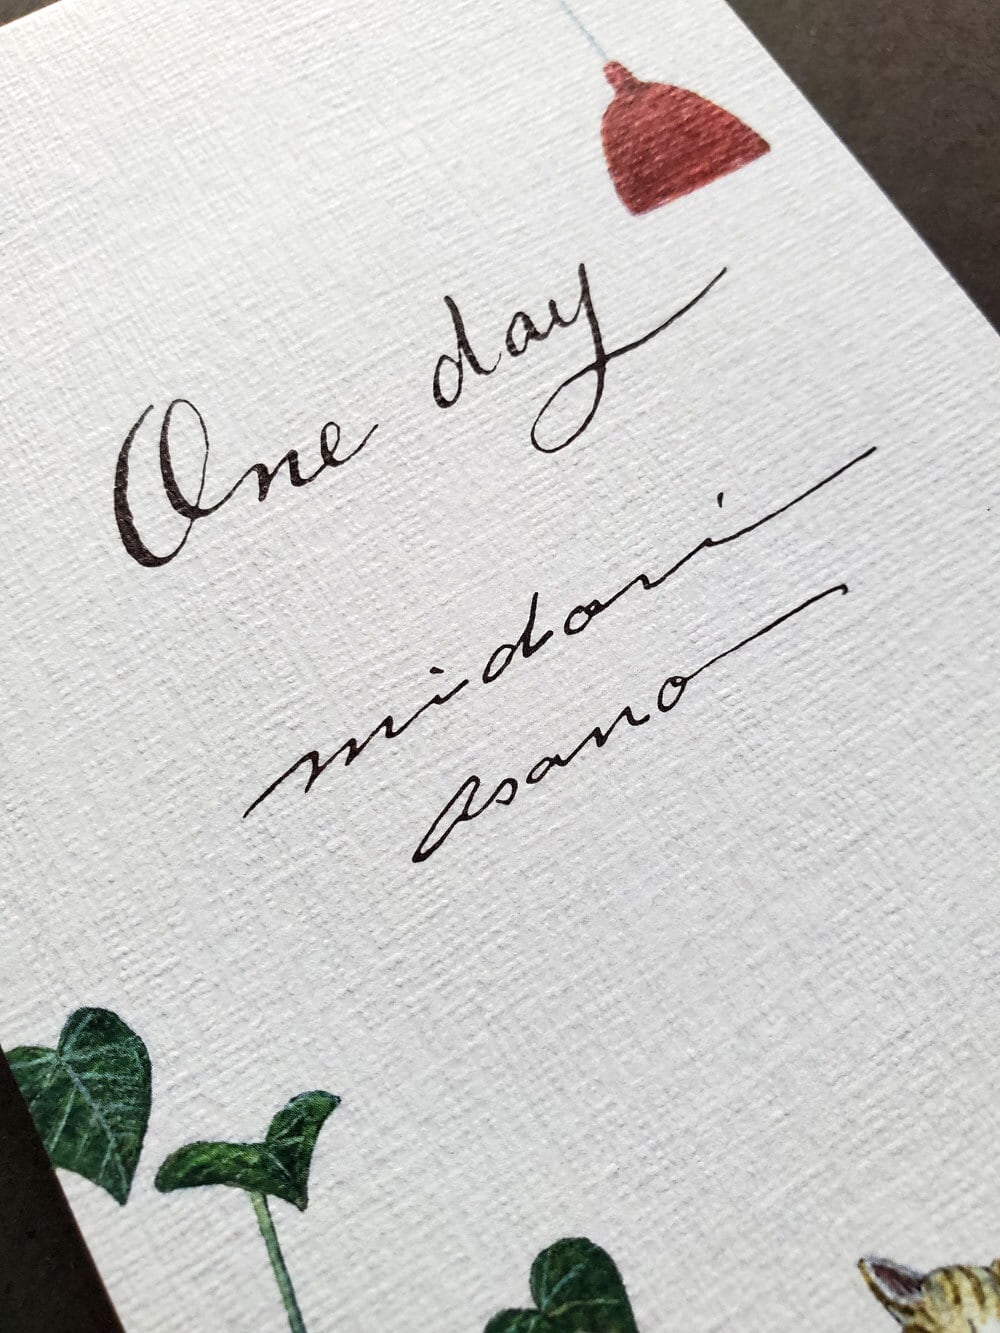 One day
midori
asano